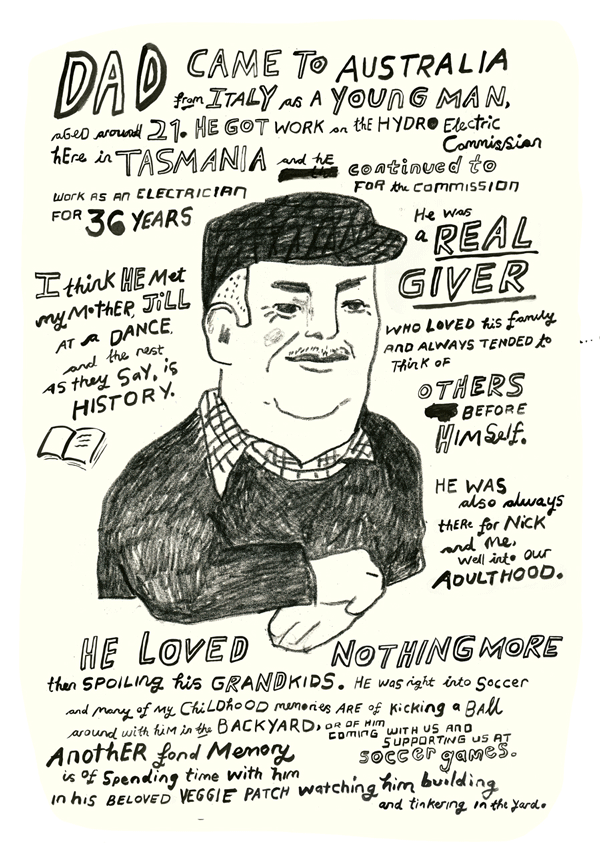 DAD CAME TO AUSTRALIA
from ITALY as A YOUNG MAN,
aged around 21. HE GOT WORK on the HYDRO Electric
Commission
here in TASMANIA and he continued to
work as an ELECTRICIAN FOR the commission
FOR 36 YEARS
He was
a REAL
GIVER
WHO LOVED his family
AND ALWAYS TENDED to
Think OF
OTHERS
BEFORE
HIMself.
I think HE Met
my MotHER, JILL
AT a DANCE,
and the rest
AS they SAY, is
HISTORY.
HE WAS
also always
there for NICK
and Me,
well into our
ADULTHOOD.
HE LOVED NOTHING MORE
then SPOILING his GRANDKIDS. HE was right into Soccer
and many of my ChildhOOD memories ARE of kicking a BALL
around with him in the BACKYARD, OR OF HIM
COMING WITH US AND
SUPPORTING US AT
soccer games.
AnothER fond Memory
is of Spending time with him
in his BELOVED VEGGIE PATCH watching him building
and tinkering in the yard.